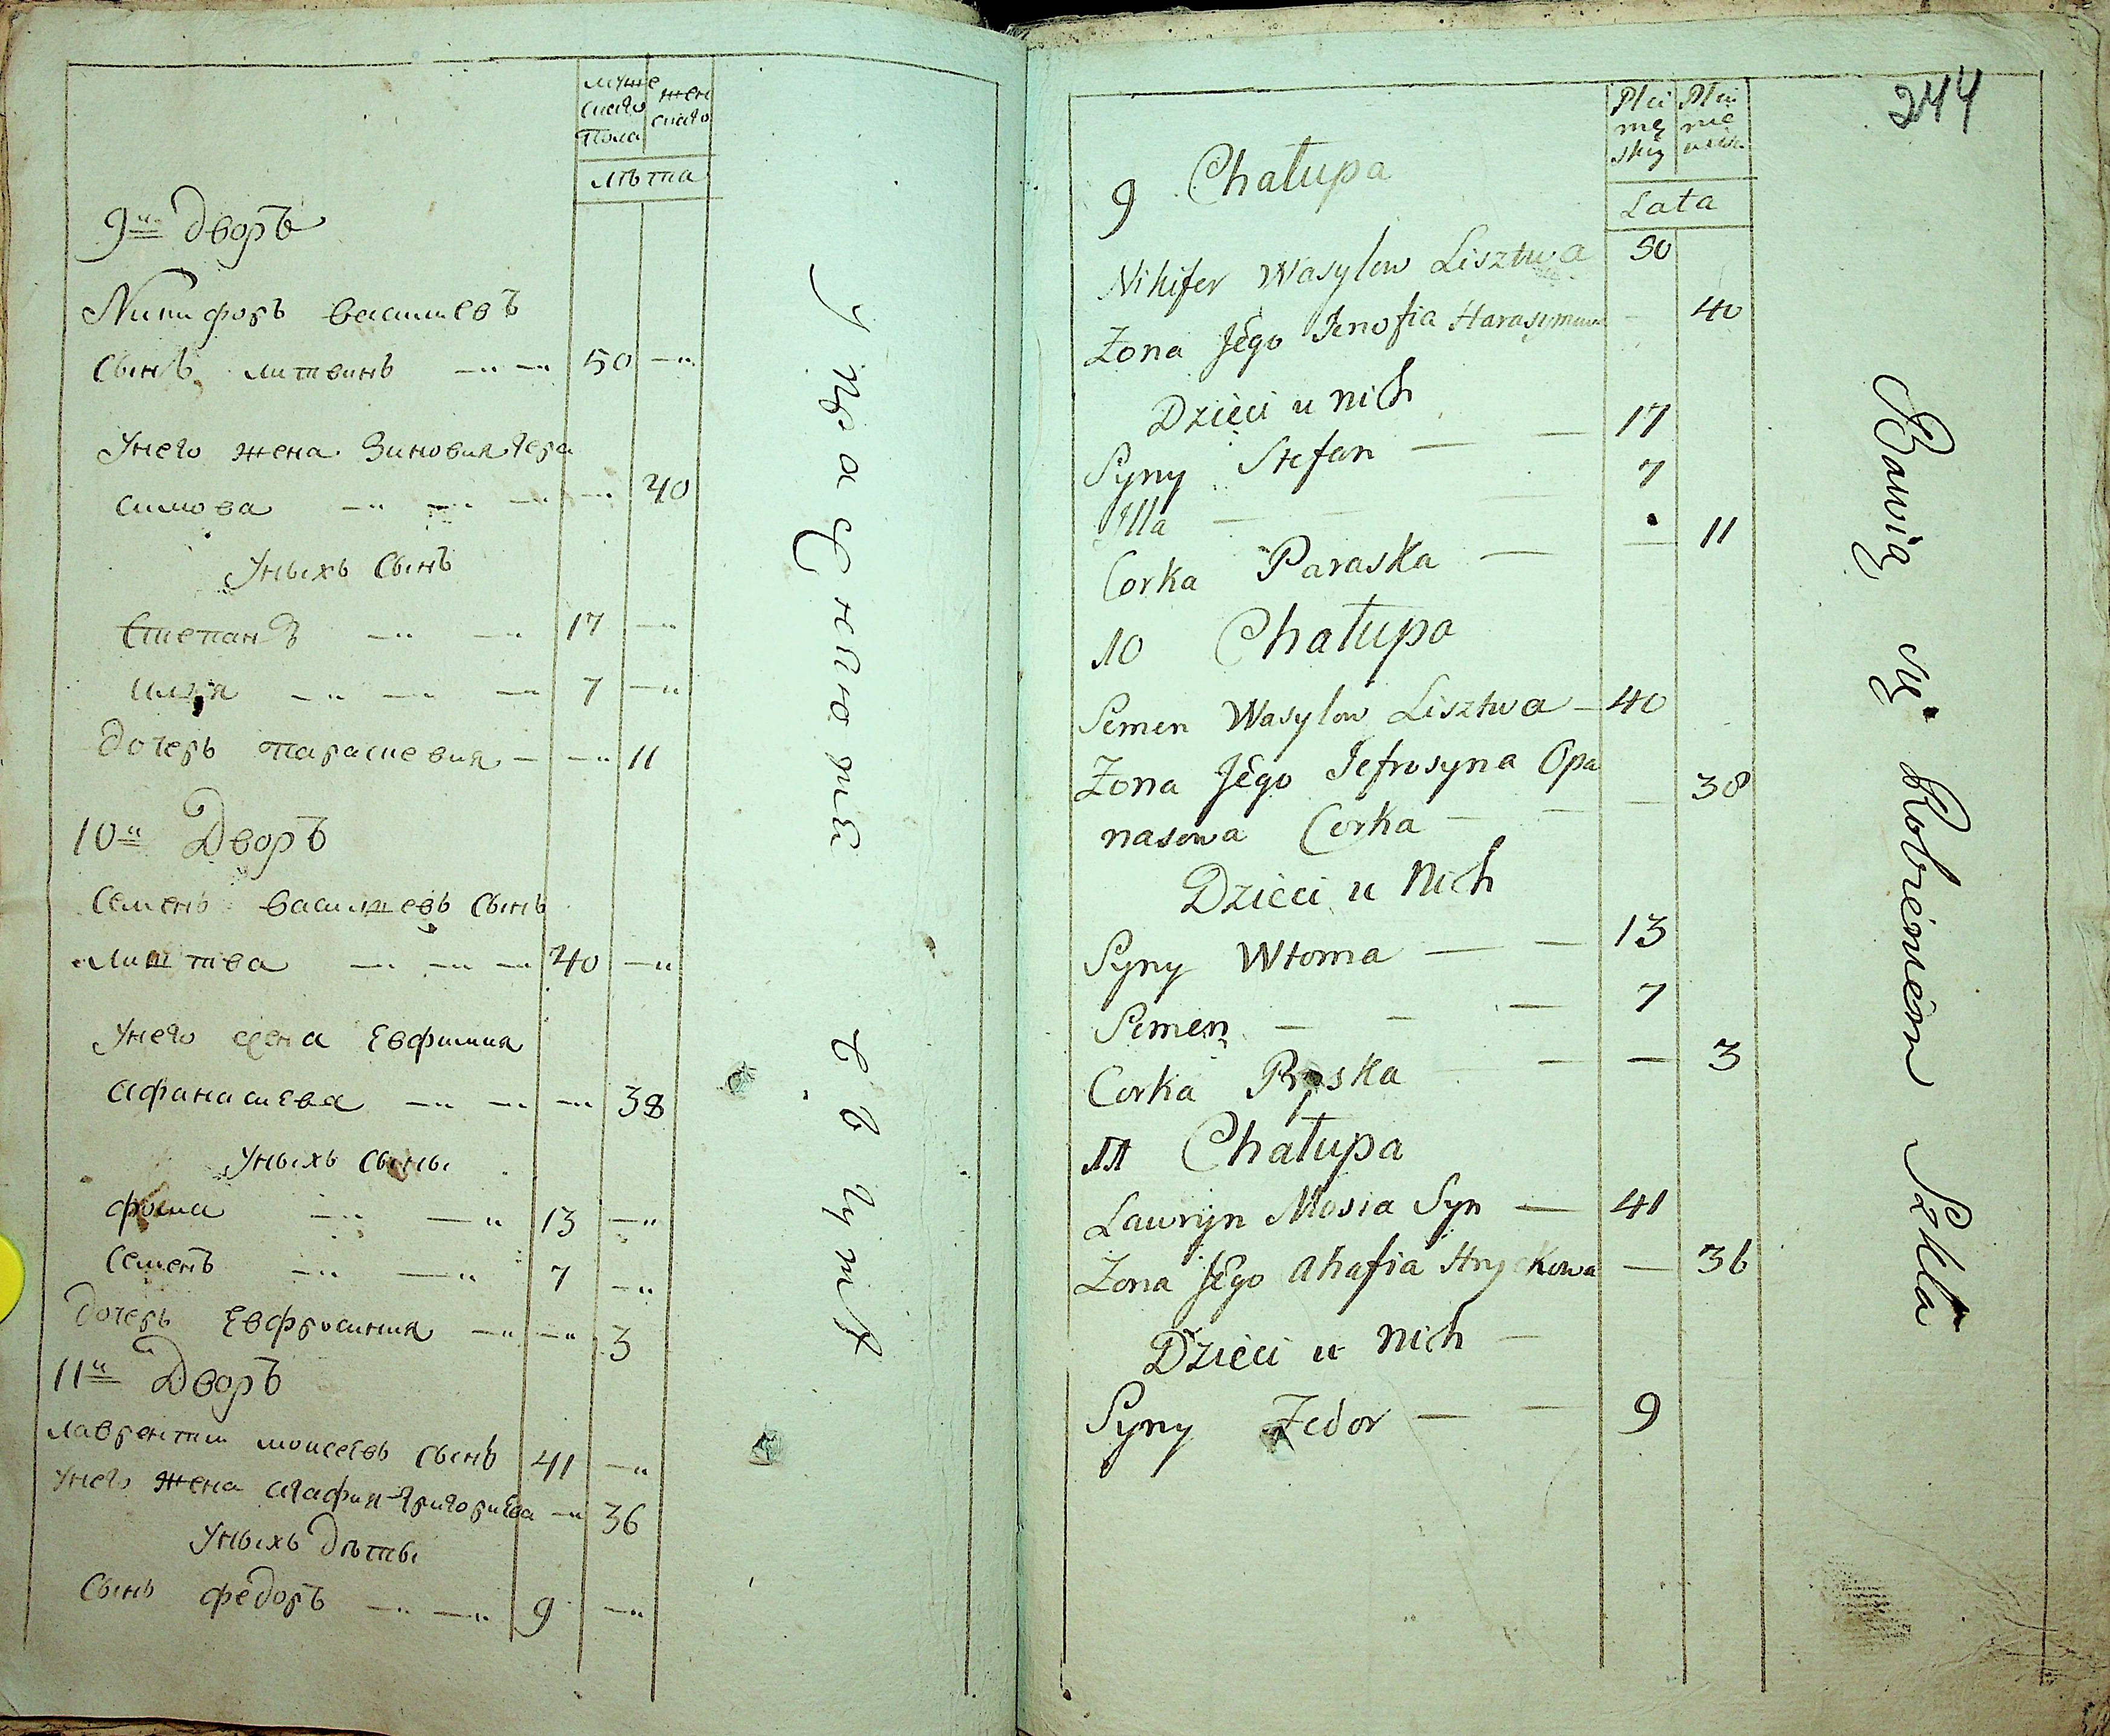 муже
скаго
Пола
жен
скаго
лѣта
9й дворъ
Никифоръ василиевъ
Сынъ литвинъ 50
Унего жена Зиновия Гера
симова 40
Уныхъ Сынъ
Степанъ 17
илия 7
дочерь параскевия 11
10й Дворъ
Семенъ василиевъ Сынъ
лиштва 40
Унего жена Евфимия
Афанасиева 38
Уныхъ Сыны
фома 13
Семенъ 7
дочерь Евфросиния 3
11й Дворъ
лаврентии моисеевъ Сынъ 41
Унего жена агафия григориева 36
Уныхъ дѣты
Сынъ федоръ 9
упражняютце
в гутѣ
244
Plci
mę
skiy
Plci
nie
Lata
9 Chałupa
Nikifer Wasylow Lisztwa 50
Żona Jego Jenofia Harasymowa 40
Dzieci u nich
Syny Stefan 17
Illa 7
Corka Paraska 11
10 Chałupa
Semen Wasylow Lisztwa 40
Żona Jego Jefrosyna Opa
nasowa Corka 38
Dzieci u Nich
Syny Wtoma 13
Semen 7
Corka 3
11 Chałupa
Lawryn Mosia Syn 41
Żona Jego Ahafia Hryckowa 36
Dzieci u nich
Syny Fedor 9
Bawią się Robieniem Szkła